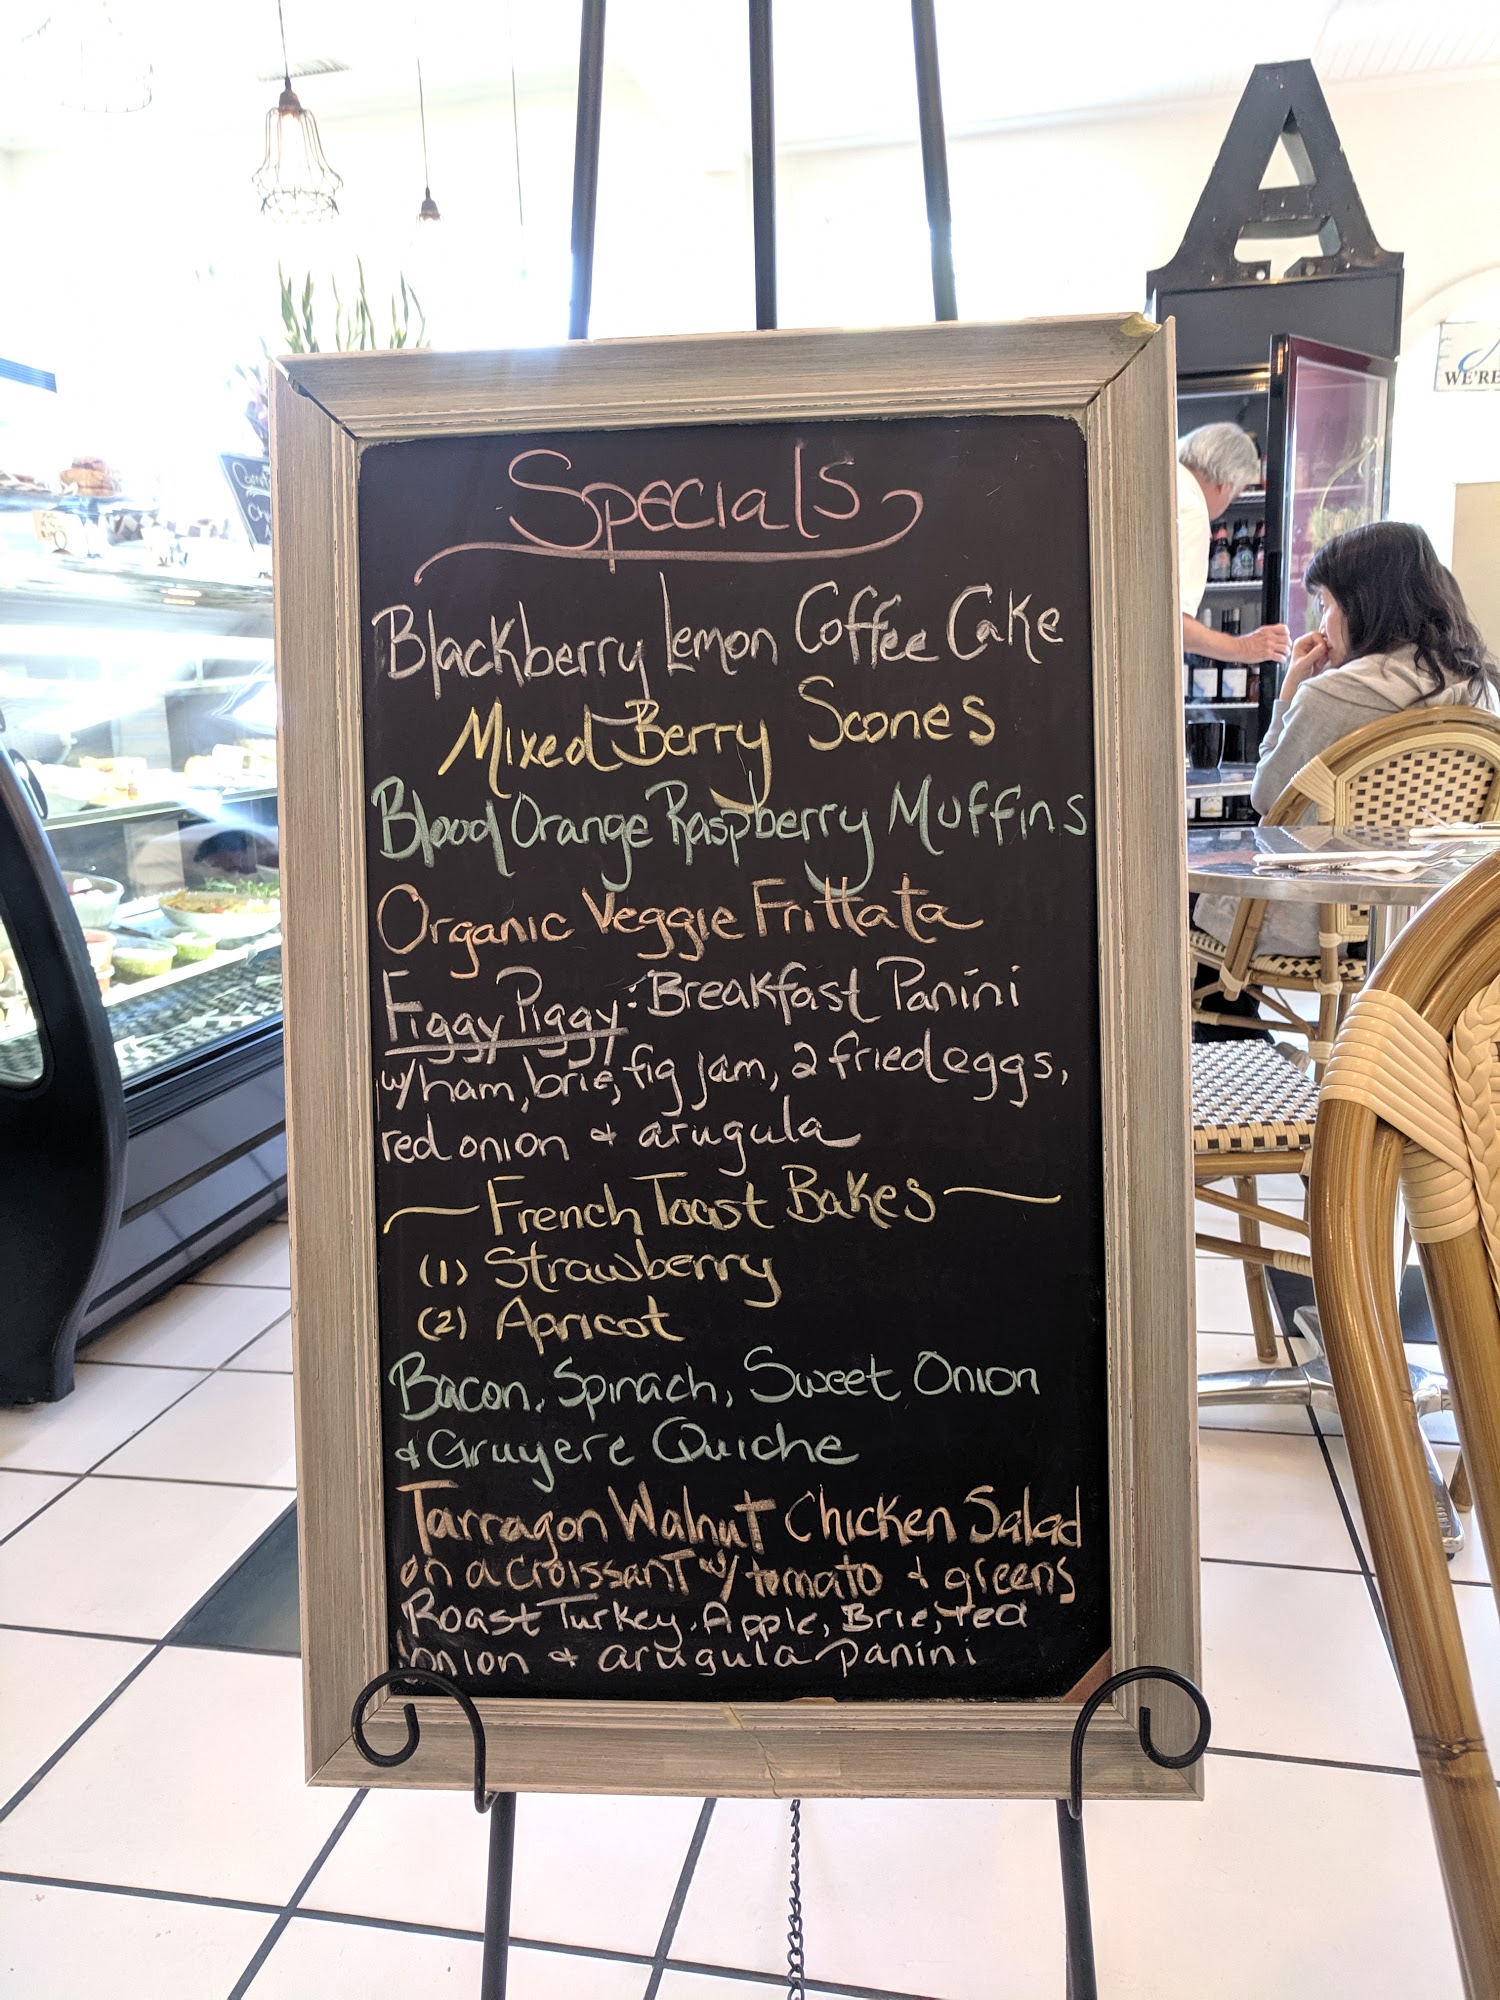 Specials
Blackberry Lemon Coffee Cake
Mixed Berry Scones
Blood Orange Raspberry Muffins
Organic Veggie Frittata
Figgy Piggy: Breakfast Panini
w/ ham, brie, fig jam, 2 fried eggs,
red onion & arugula
French Toast Bakes
(1) Strawberry
(2) Apricot
Bacon, Spinach, Sweet Onion
& Gruyere Quiche
Tarragon Walnut Chicken Salad
on a croissant w/ tomato & greens
Roast Turkey, Apple, Brie, red
onion & arugula panini
A
WE'RE